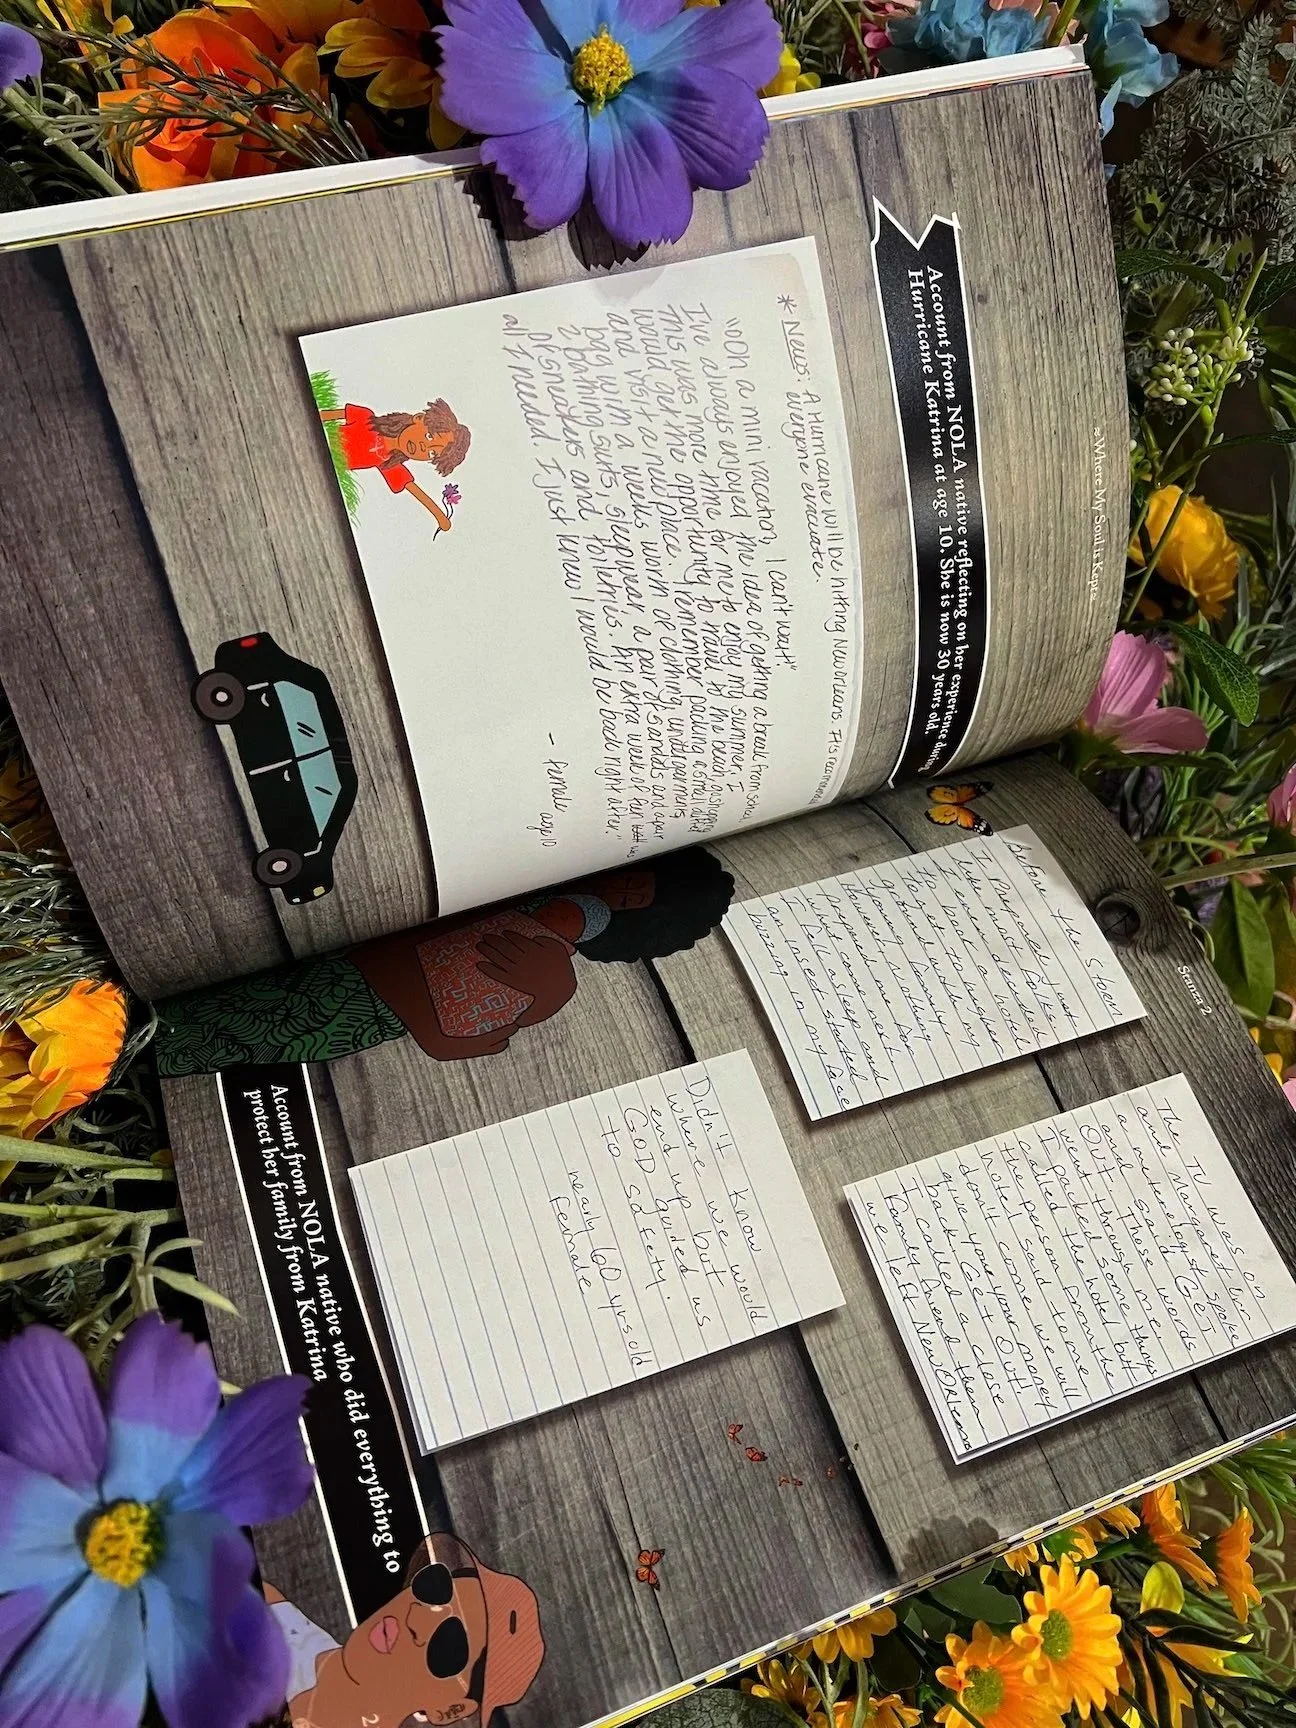 ~Where My Soul is Kept~
Account from NOLA native reflecting on her experience during
Hurricane Katrina at age 10. She is now 30 years old.
* News: A Hurricane will be hitting New Orleans. It's recommended
everyone evacuate.
"Ooh a mini vacation, I can't wait!"
I've always enjoyed the idea of getting a break from school
this was more time for me to enjoy my summer, I
would get the opportunity to travel to
and visit a new place. I remember packing a small duffel
bag with a weeks worth of clothing, undergarments,
2 bathing suits, sleepwear, a pair of sandals and a pair
of sneakers and toiletries. An extra week of fun was
all I needed. I just knew I would be back right after."
- female, age 10
Stanza 2
Before the storm
I prepared just
like most folks.
I even had a hotel
to get to higher
ground with my
young family
However, Nothing
prepared me for
what came next.
I fell asleep and
an insect started
buzzing in my face
The TV was on
and Margaret Orr
a meteorologist spoke
and said GET
OUT. Those words
went through me.
I packed some things
I called the hotel but
the person from the
hotel said to me
don't come we will
give you your money
back. Get Out!
I called a close
family friend then
we left New Orleans
Didn't know we would
where we would
end up but
GOD guided us
to safety.
nearly 60 yrs old
female
Account from NOLA native who did everything to
protect her family from Katrina
2